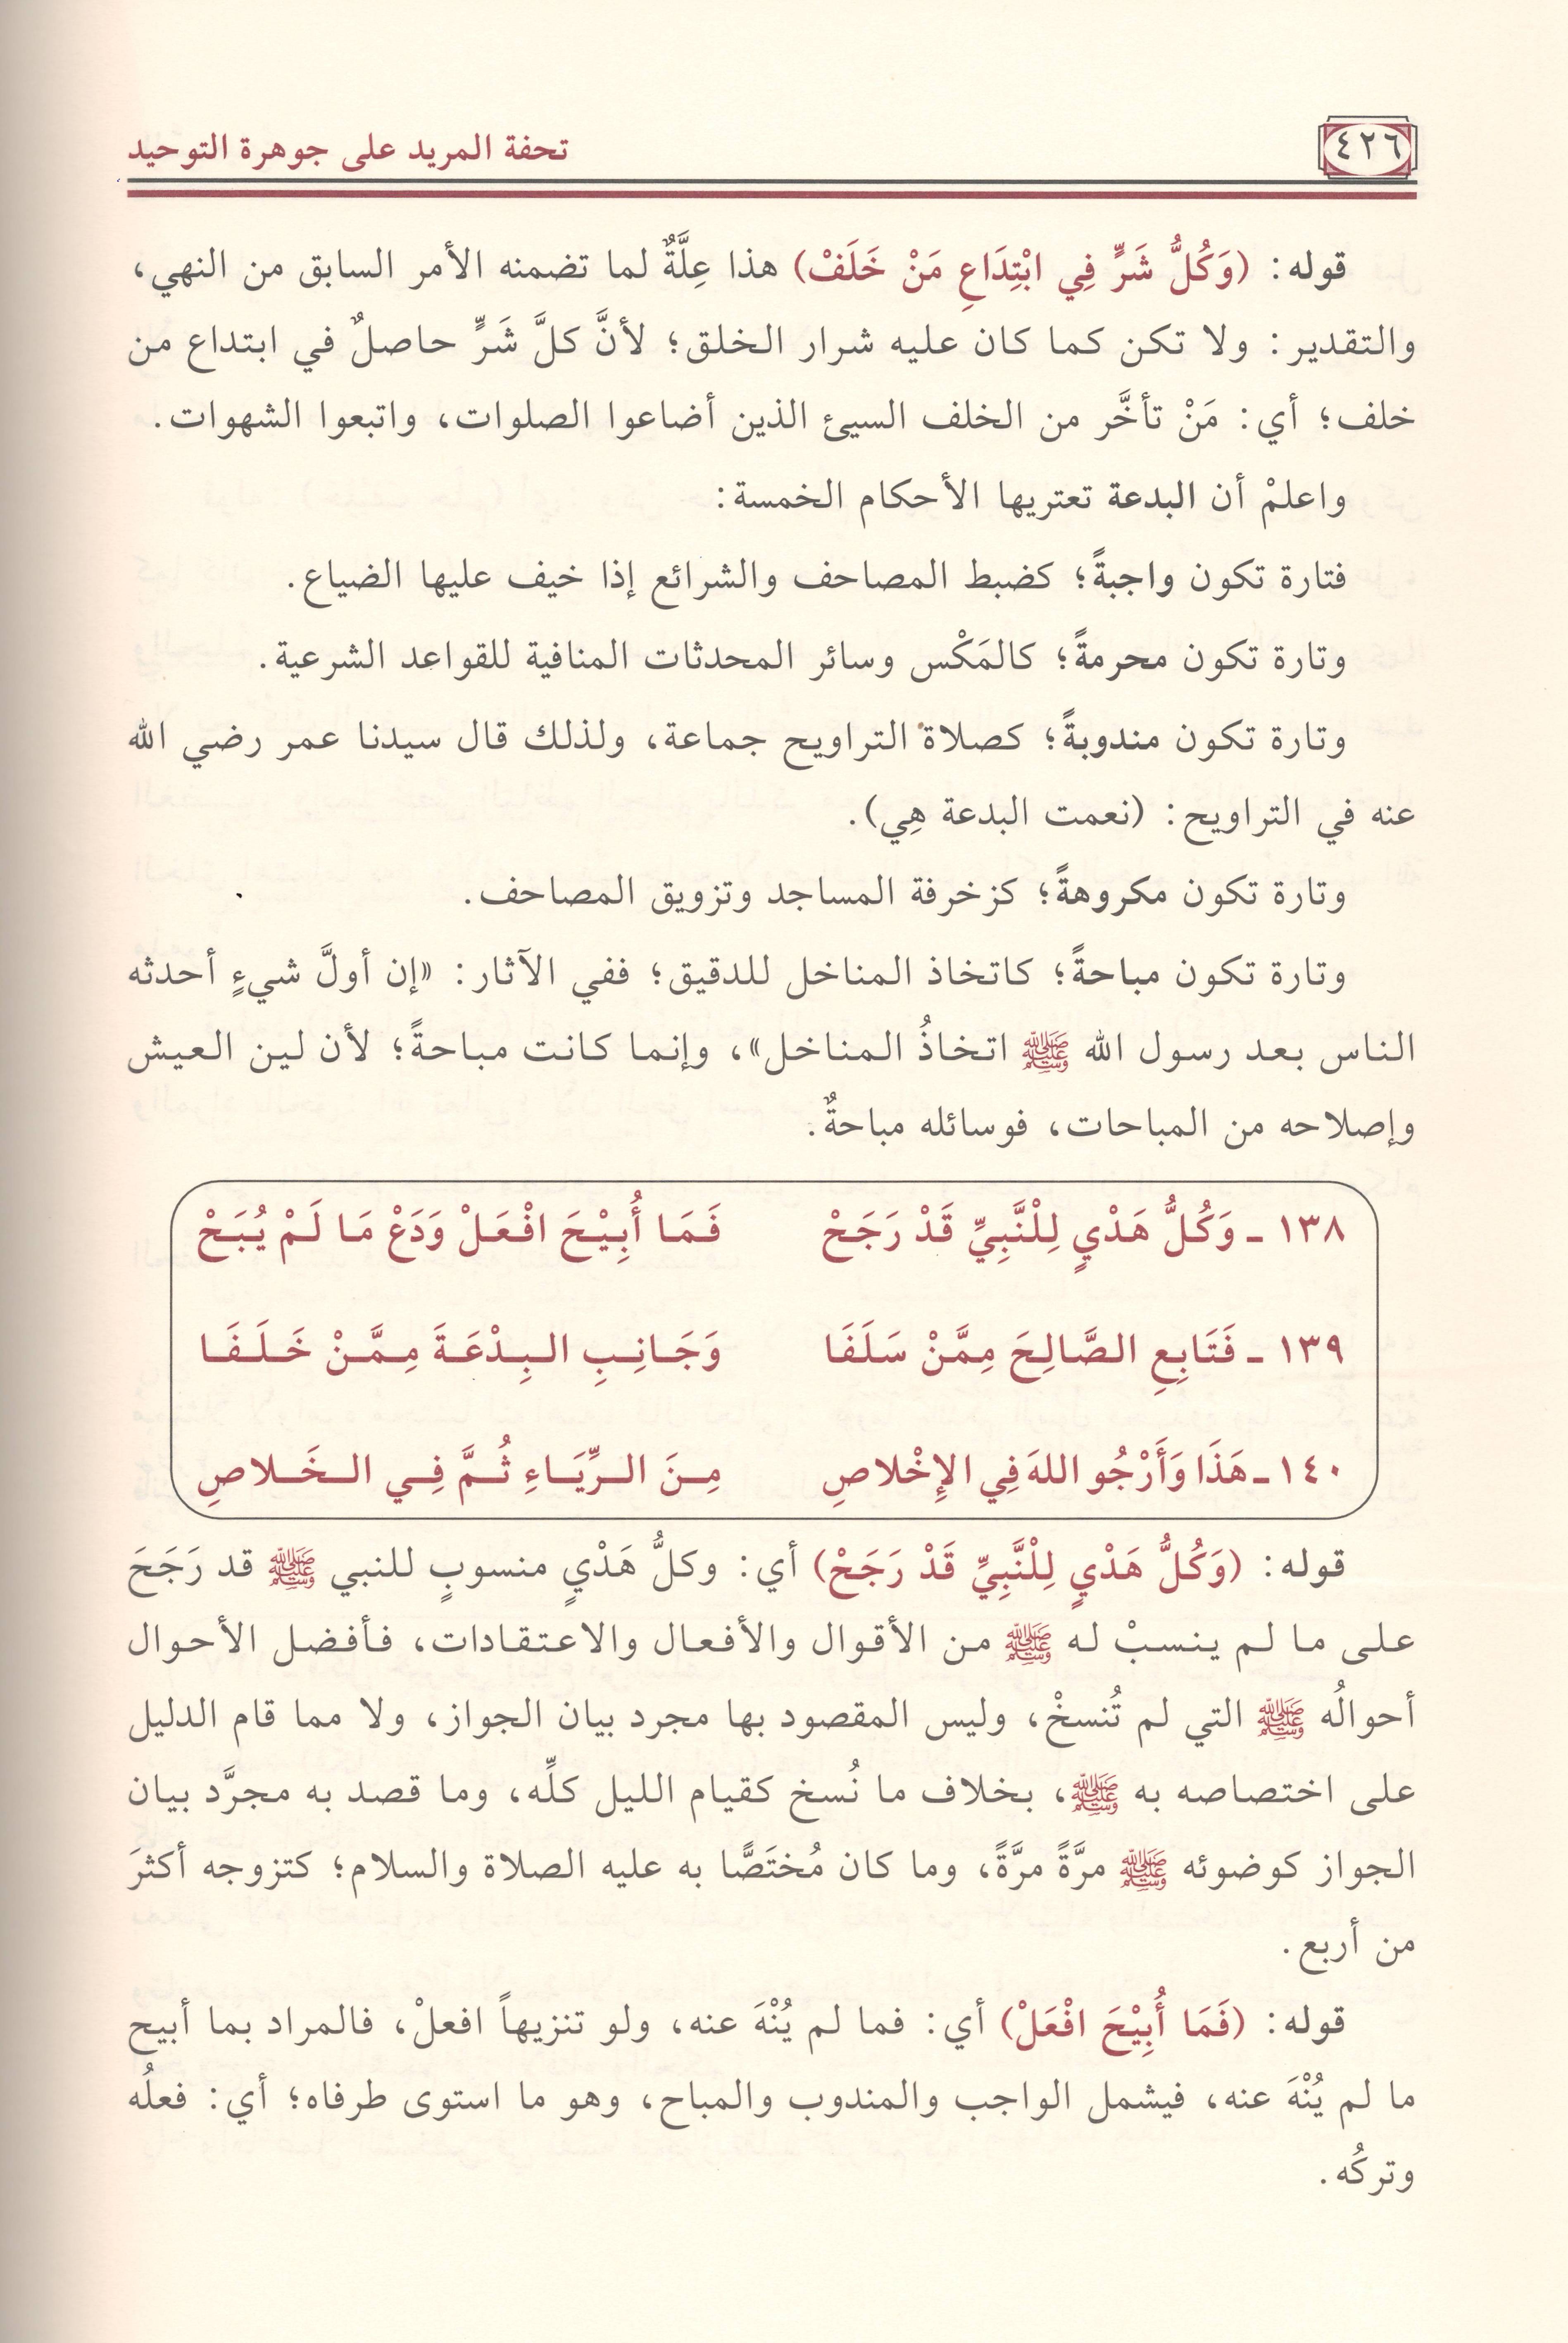 ٤٢٦
تحفة المريد على جوهرة التوحيد
قوله: (وَكُلُّ شَرٍّ فِي ابْتِدَاعِ مَنْ خَلَفْ) هذا عِلَّةٌ لما تضمنه الأمر السابق من النهي،
والتقدير: ولا تكن كما كان عليه شرار الخلق؛ لأنَّ كلَّ شَرٍّ حاصلٌ في ابتداع من
خلف؛ أي: مَنْ تأخَّر من الخلف السيئ الذين أضاعوا الصلوات، واتبعوا الشهوات.
واعلمْ أن البدعة تعتريها الأحكام الخمسة:
فتارة تكون واجبةً؛ كضبط المصاحف والشرائع إذا خيف عليها الضياع.
وتارة تكون محرمةً؛ كالمَكْس وسائر المحدثات المنافية للقواعد الشرعية.
وتارة تكون مندوبةً؛ كصلاة التراويح جماعة، ولذلك قال سيدنا عمر رضي الله
عنه في التراويح: (نعمت البدعة هِي).
وتارة تكون مكروهةً؛ كزخرفة المساجد وتزويق المصاحف.
وتارة تكون مباحةً؛ كاتخاذ المناخل للدقيق؛ ففي الآثار: «إن أولَّ شيءٍ أحدثه
الناس بعد رسول الله ﷺ اتخاذُ المناخل»، وإنما كانت مباحةً؛ لأن لين العيش
وإصلاحه من المباحات، فوسائله مباحةٌ.
١٣٨ ـ وَكُلُّ هَدْيٍ لِلْنَّبِيِّ قَدْ رَجَحْ فَمَا أُبِيْحَ افْعَلْ وَدَعْ مَا لَمْ يُبَحْ
١٣٩ ـ فَتَابِعِ الصَّالِحَ مِمَّنْ سَلَفَا وَجَانِبِ البِدْعَةَ مِمَّنْ خَلَفَا
١٤٠ ـ هَذَا وَأَرْجُو اللهَ فِي الإِخْلاصِ مِنَ الرِّيَاءِ ثُمَّ فِي الخَلاصِ
قوله: (وَكُلُّ هَدْيٍ لِلْنَّبِيِّ قَدْ رَجَحْ) أي: وكلُّ هَدْيٍ منسوبٍ للنبي ﷺ قد رَجَحَ
على ما لم ينسبْ له ﷺ من الأقوال والأفعال والاعتقادات، فأفضل الأحوال
أحوالُه ﷺ التي لم تُنسخْ، وليس المقصود بها مجرد بيان الجواز، ولا مما قام الدليل
على اختصاصه به ﷺ، بخلاف ما نُسخ كقيام الليل كلِّه، وما قصد به مجرَّد بيان
الجواز كوضوئه ﷺ مرَّةً مرَّةً، وما كان مُختَصًّا به عليه الصلاة والسلام؛ كتزوجه أكثرَ
من أربع.
قوله: (فَمَا أُبِيْحَ افْعَلْ) أي: فما لم يُنْهَ عنه، ولو تنزيهاً افعلْ، فالمراد بما أبيح
ما لم يُنْهَ عنه، فيشمل الواجب والمندوب والمباح، وهو ما استوى طرفاه؛ أي: فعلُه
وتركُه.